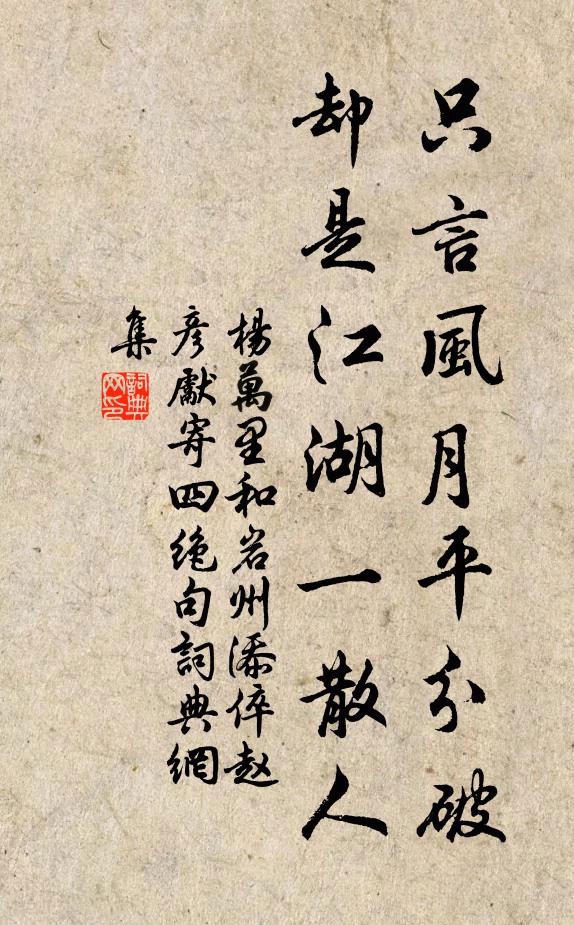 只言風月平分破
却是江湖一散人
楊萬里和岩州添倅赵
彦獻寄四絶句詞典網
集
詞典
网印